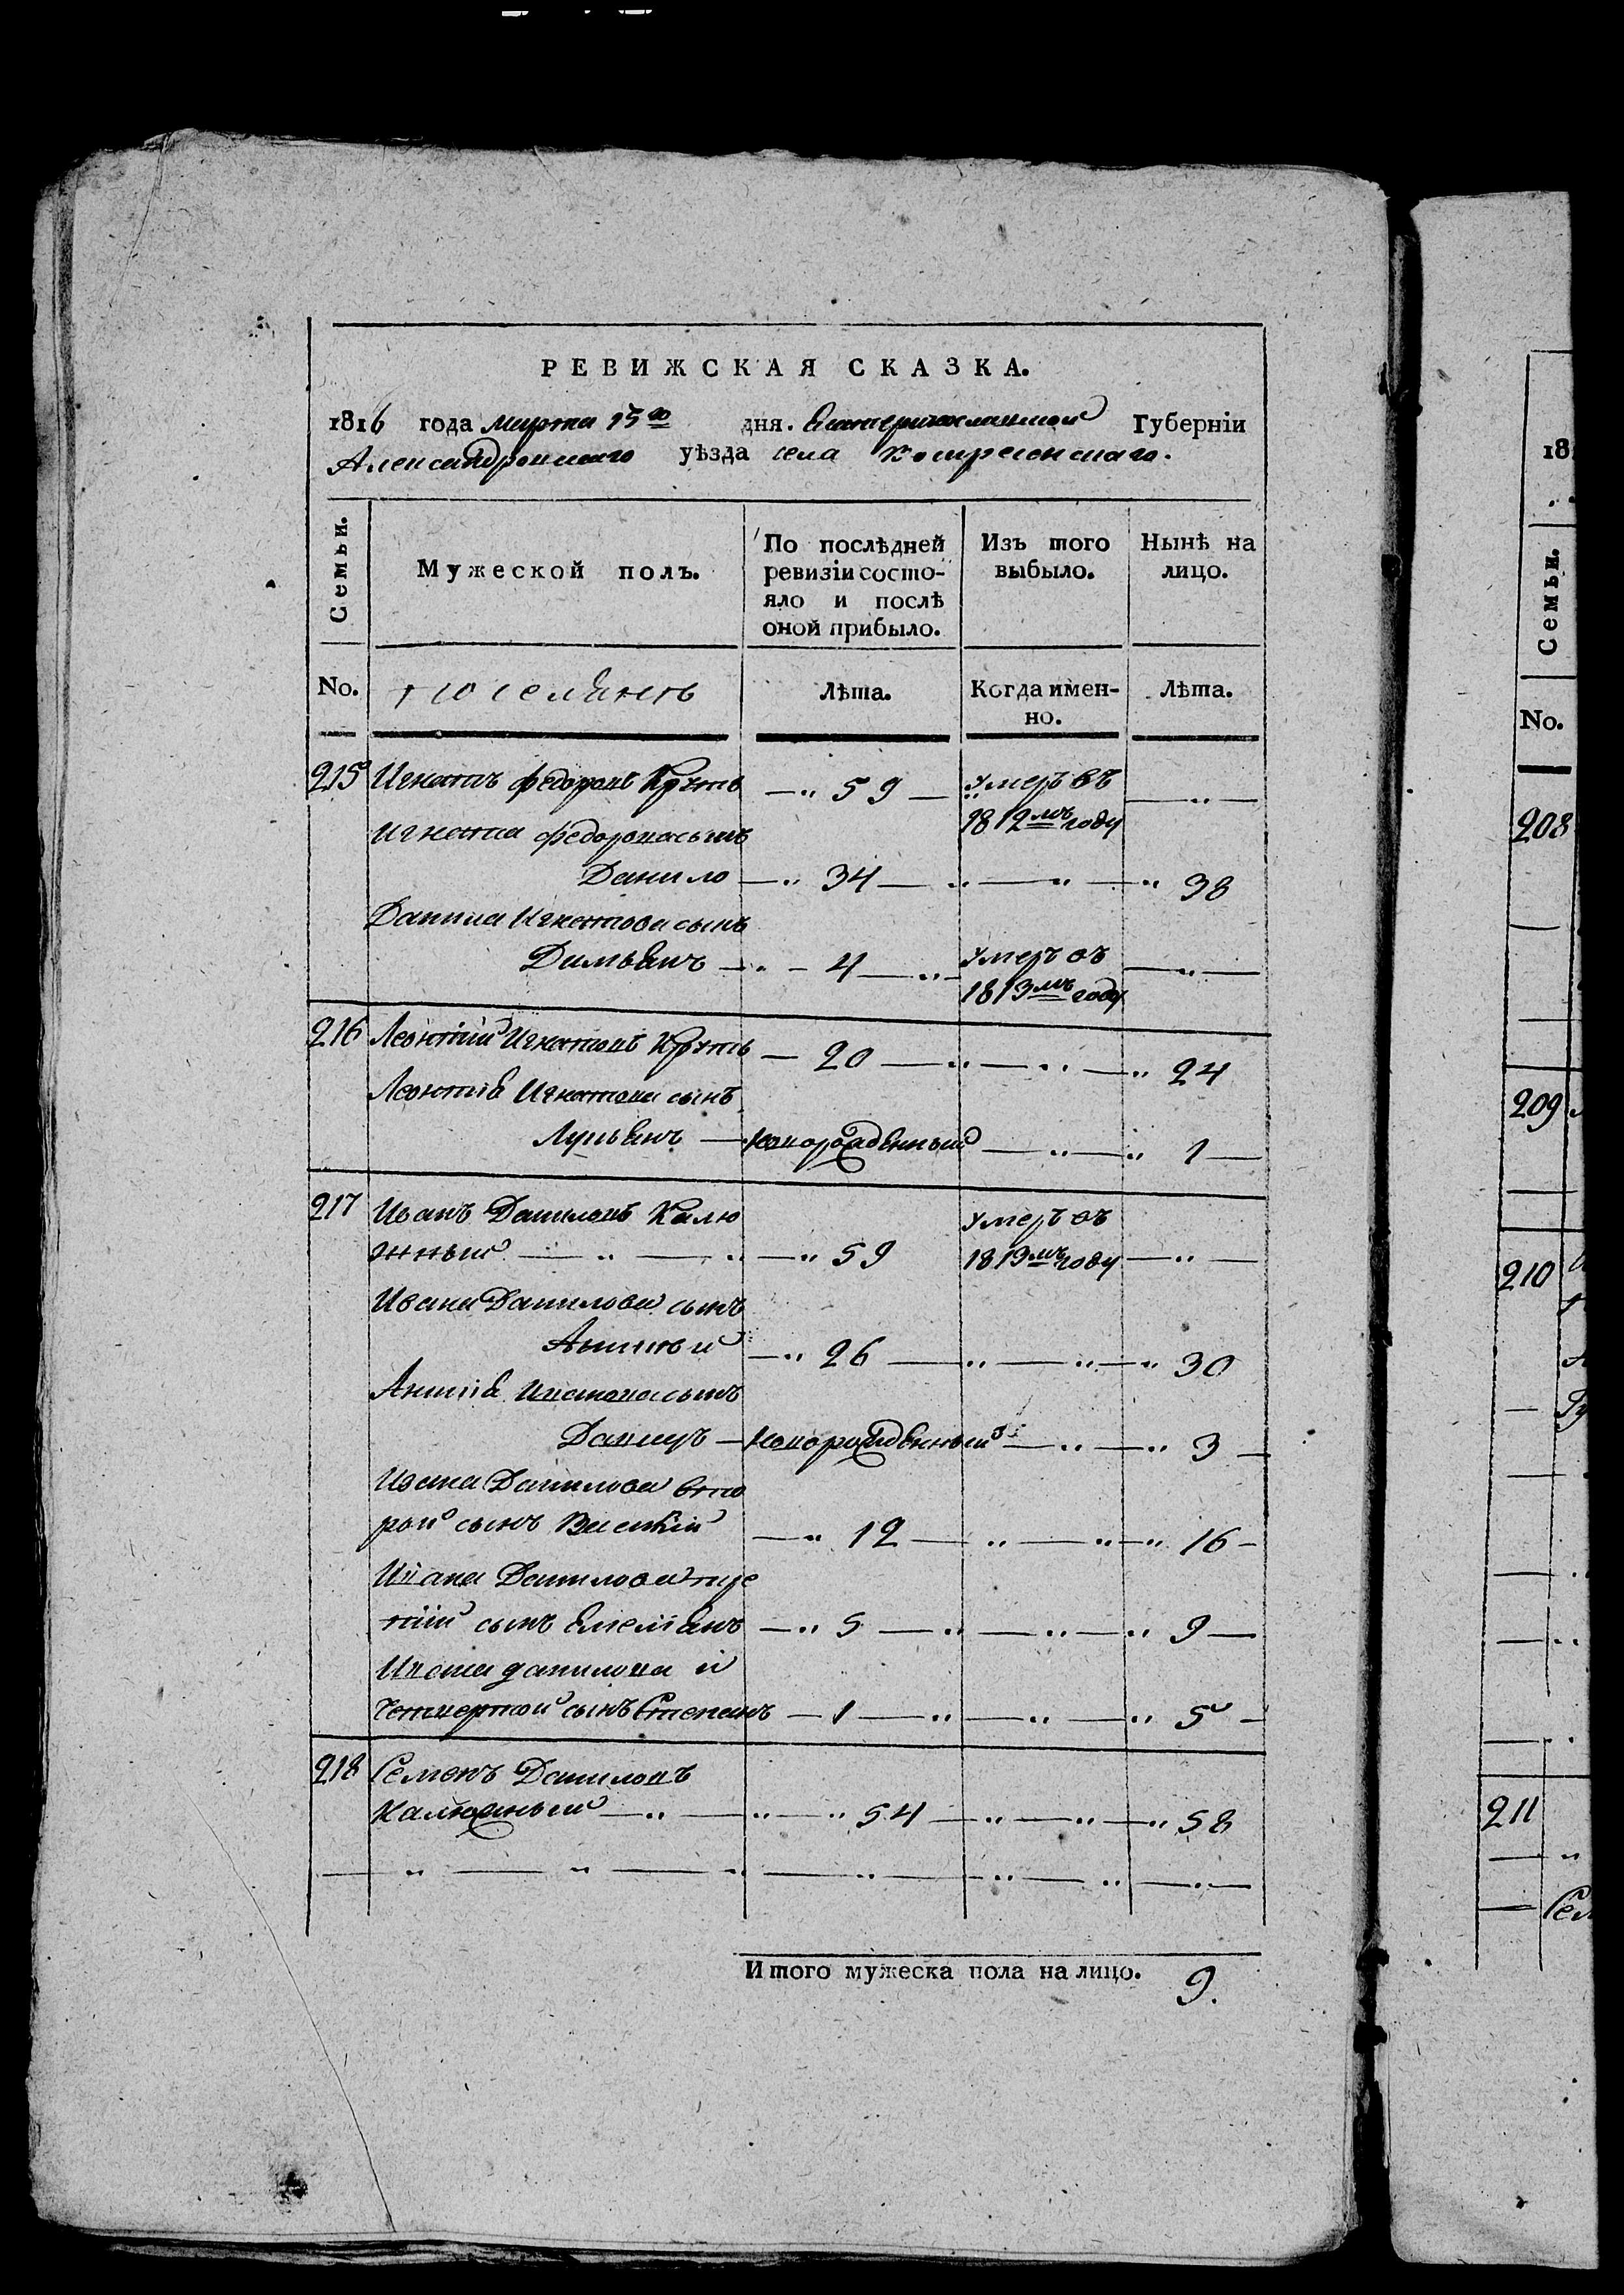 РЕВИЖСКАЯ СКАЗКА.
1816 года марта 15го дня. Екатеринославской Губерніи
Александровскаго уѣзда села Воскресенскаго.
Семьи.
Мужеской полъ.
По послѣдней ревизіи состо-
яло и послѣ
оной прибыло.
Изъ того
выбыло.
Нынѣ на
лицо.
No.
поселянъ
лѣта.
Когда имен-
но.
лѣта.
215 Игнатъ Федоровъ — 59 — умеръ въ
1812мъ году
Игната Федорова сынъ
Данило — 34 — 38
Данила Игнатова сынъ
Демьянъ — 4 — умеръ въ
1813мъ году
216 Леонтий Игнатовъ — 20 — 24
Леонтиѣ Игнатова сынъ
Лукьянъ — новорожденный — 1 —
217 Иванъ Даниловъ Калю
жный — 59 умеръ въ
1813мъ году
Ивана Данилова сынъ
— 26 — 30
сынъ
— новорожденный — 3 —
Ивана Данилова вто
рой сынъ Василий — 12 — 16 -
Ивана Данилова тре
тий сынъ Емельянъ — 5 — 9 —
Ивана данилова
четвертой сынъ Степанъ — 1 — 5 -
218 Семенъ Даниловъ
Калюжный — 54 — 58
Итого мужеска пола на лицо. 9.
18
Семьи.
No.
208
209
210
211
Сем